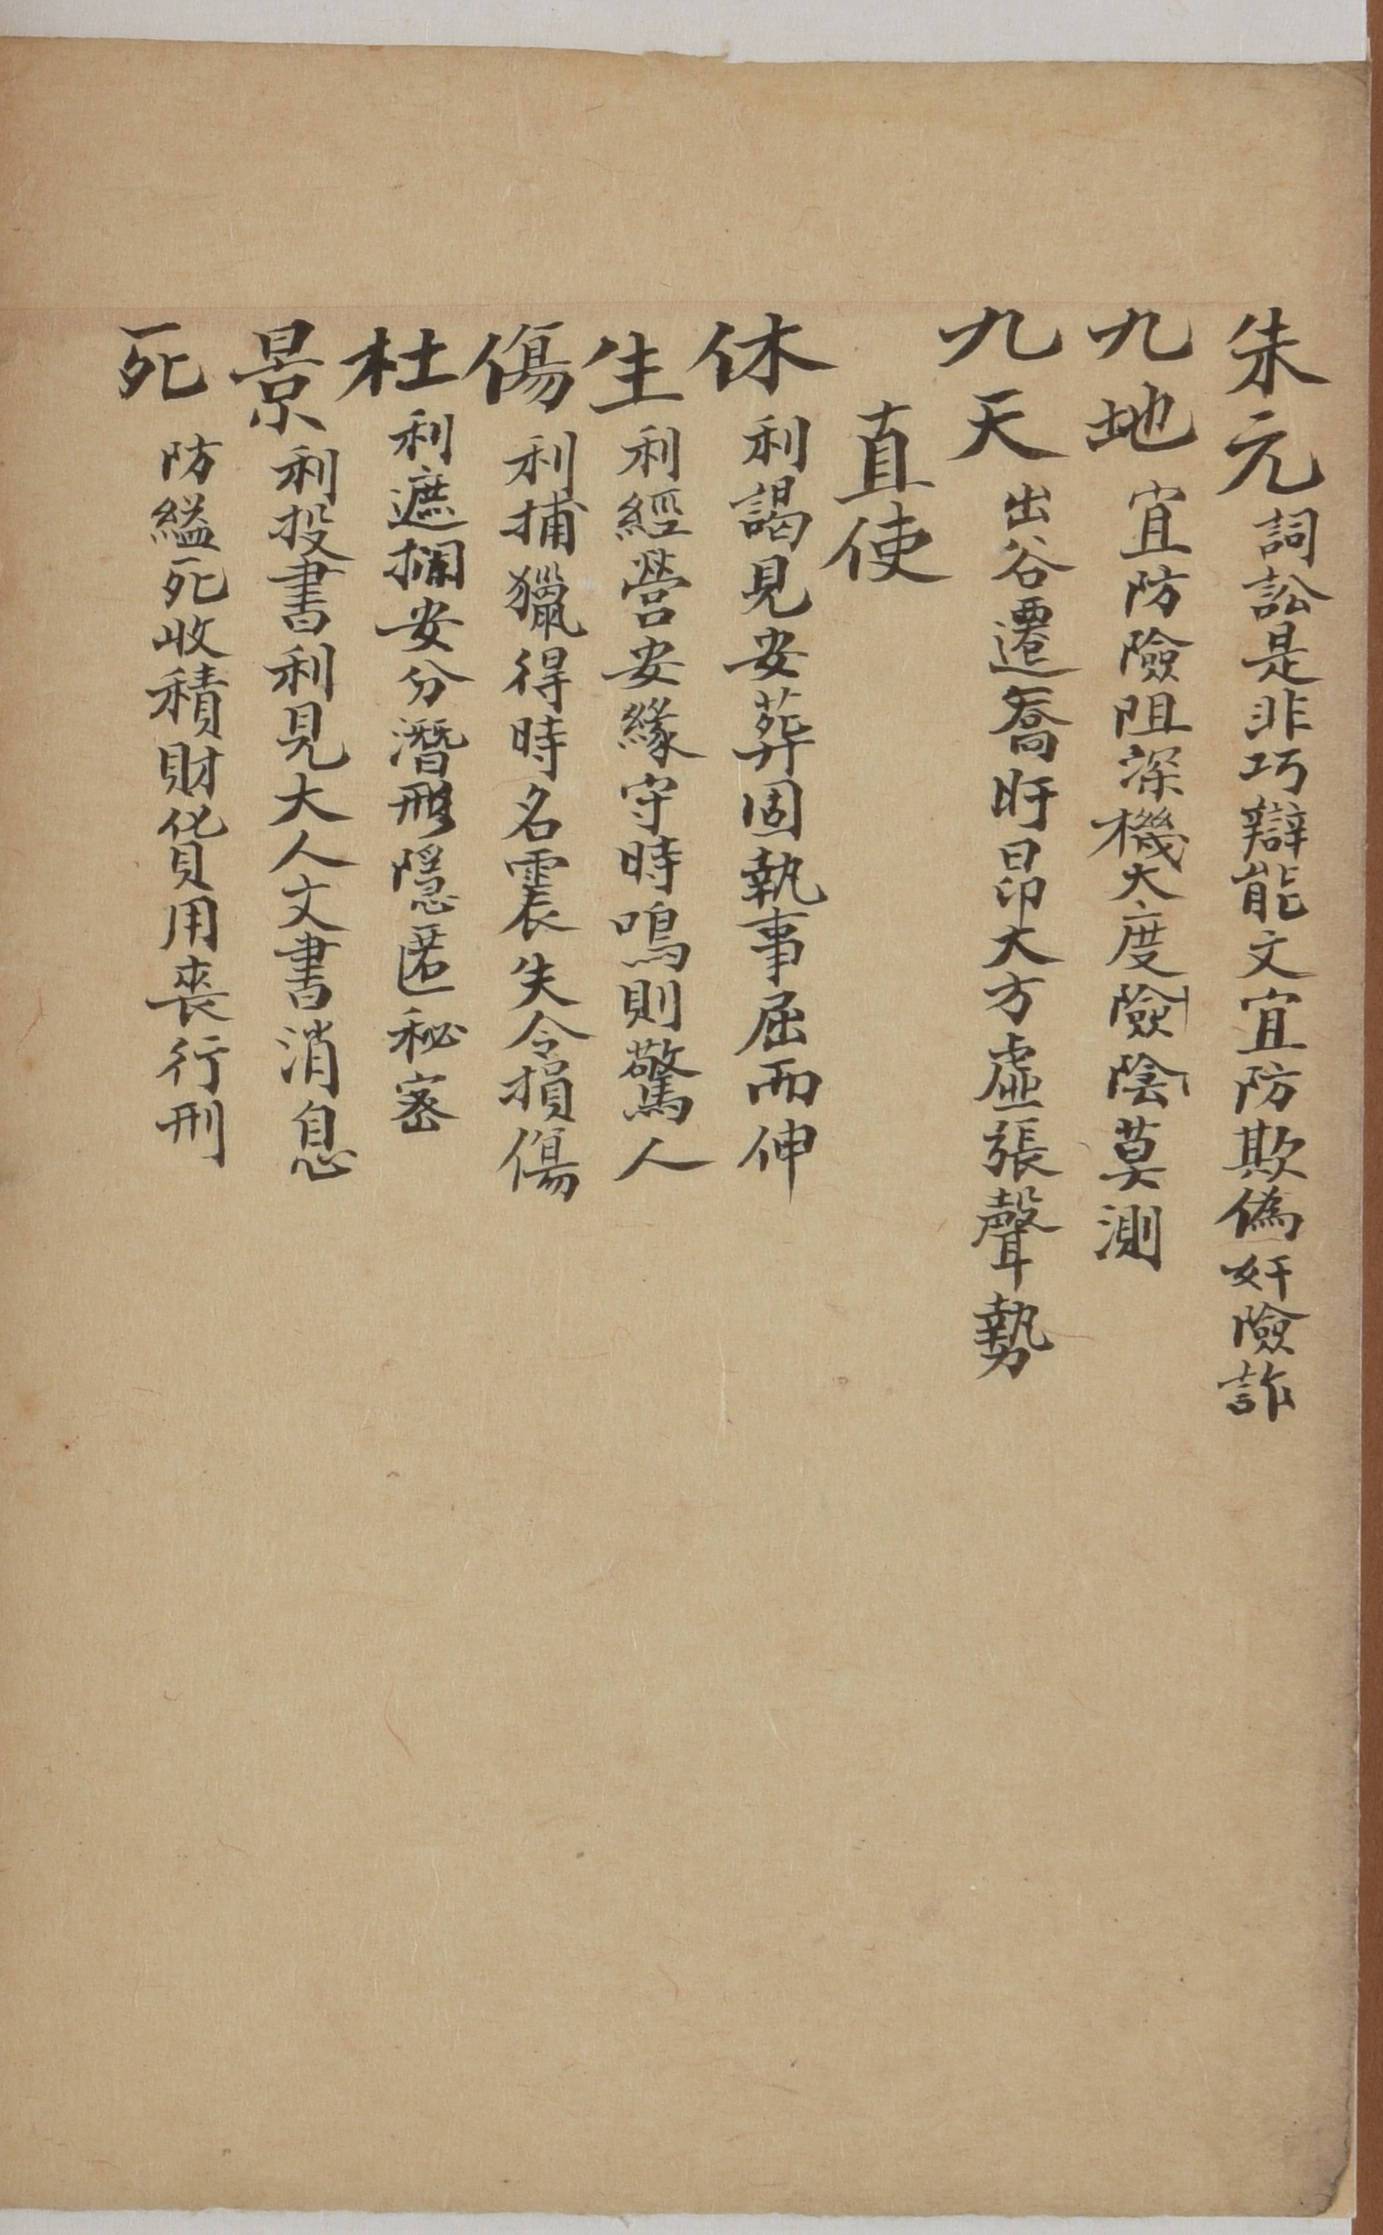 朱元 詞訟是非巧辯能文宜防欺偽奸險詐
九地 宜防險阻深機大度險陰莫測
九天 出谷遷喬盱昂大方虛張聲勢
直使
休 利謁見安葬固執事屈而伸
生 利經營安緣守時鳴則驚人
傷 利捕獵得時名震失令損傷
杜 利遮攔安分潛形隱匿秘密
景 利投書利見大人文書消息
死 防縊死收積財貨用喪行刑